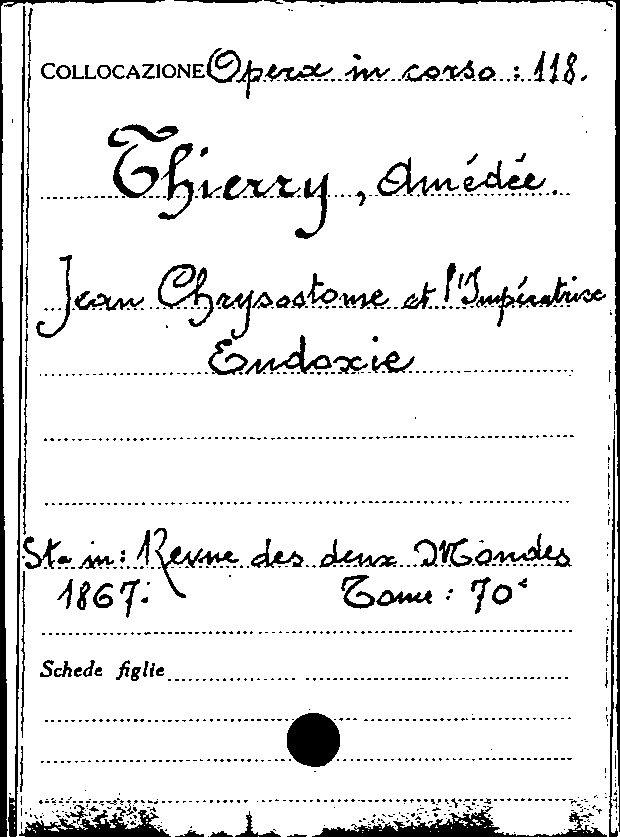 COLLOCAZIONE Opera in corso : 118.
Thierry, Amédée.
Jean Chrysostome et l'Impératrice
Eudoxie
Sta in: Revue des deux Mondes
1867. Tome : 70°
Schede figlie